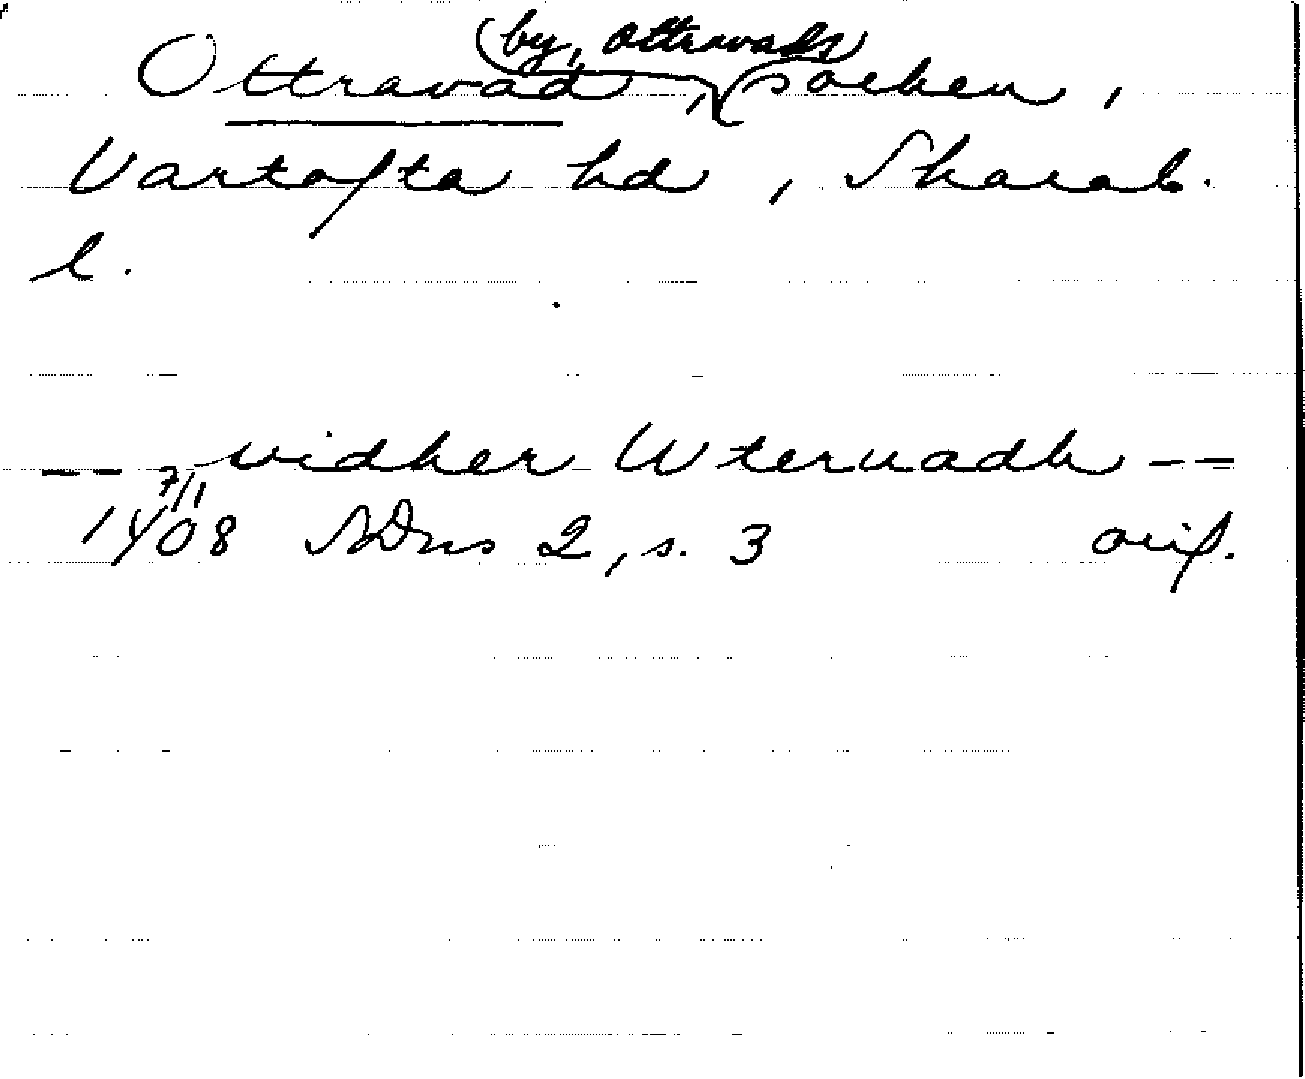 (by, Ottravads)
Ottravad, socken,
Vartofta hd, Skarab.
l.
-- widher Uteruadh --
7/1
1408 SDns 2, s. 3 orig.